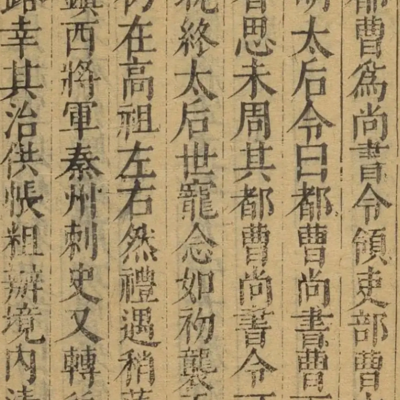 都曹爲尚書令領吏部曹
太后令曰都曹尚書曹
思未周其都曹尚書令
終太后世寵念如初襲
在高祖左右然禮遇稍
鎮西將軍秦州刺史又轉
路幸其治供帳粗辦境內清